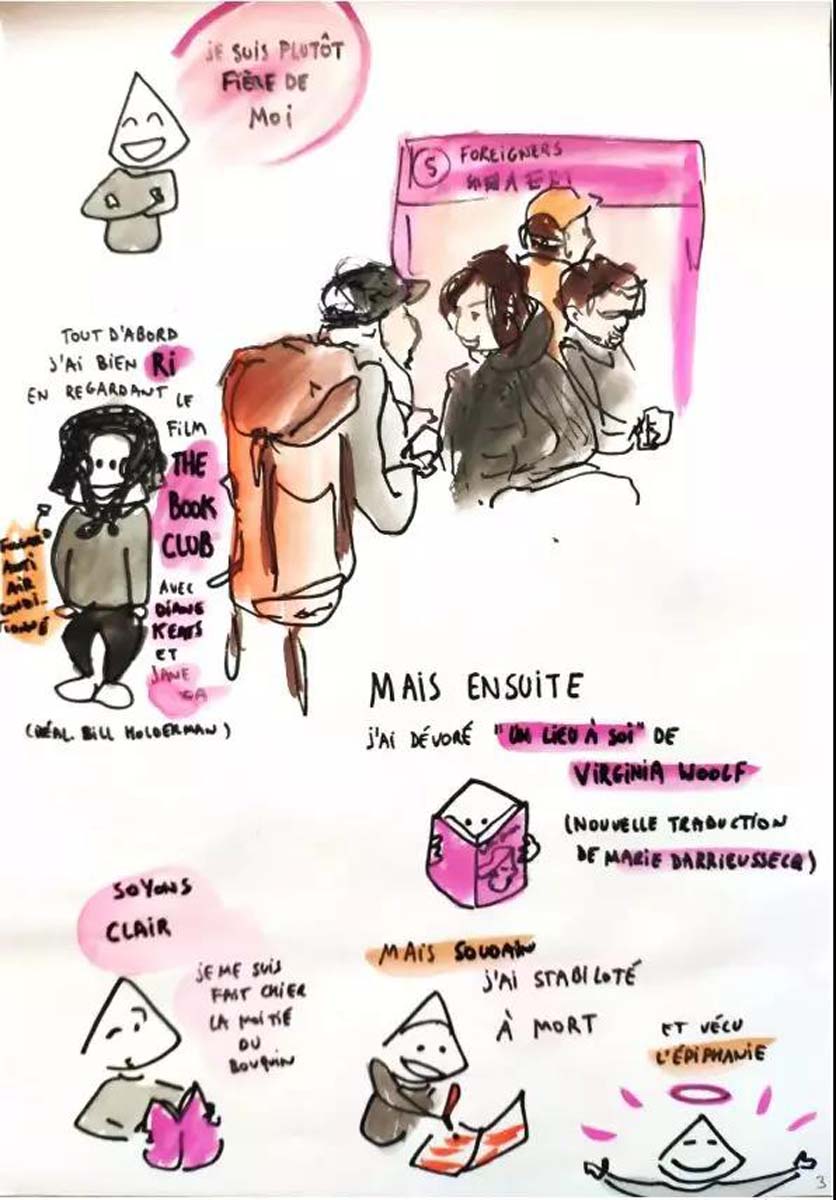 JE SUIS PLUTÔT
FIÈRE DE
MOI
5 FOREIGNERS
TOUT D'ABORD
J'AI BIEN RI
EN REGARDANT LE
FILM
THE
BOOK
CLUB
AVEC
DIANE
KEATS
ET
JANE
ANTI
AIR
CONDI-
TIONNÉ
(RÉAL. BILL HOLDERMAN)
MAIS ENSUITE
J'AI DÉVORÉ "UN LIEU À SOI" DE
VIRGINIA WOOLF
(NOUVELLE TRADUCTION
DE MARIE DARRIEUSSECQ)
SOYONS
CLAIR
JE ME SUIS
FAIT CHIER
LA MOITIÉ
DU
BOUQUIN
MAIS SOUDAIN
J'AI STABILOTÉ
À MORT
ET VÉCU
L'ÉPIPHANIE
3